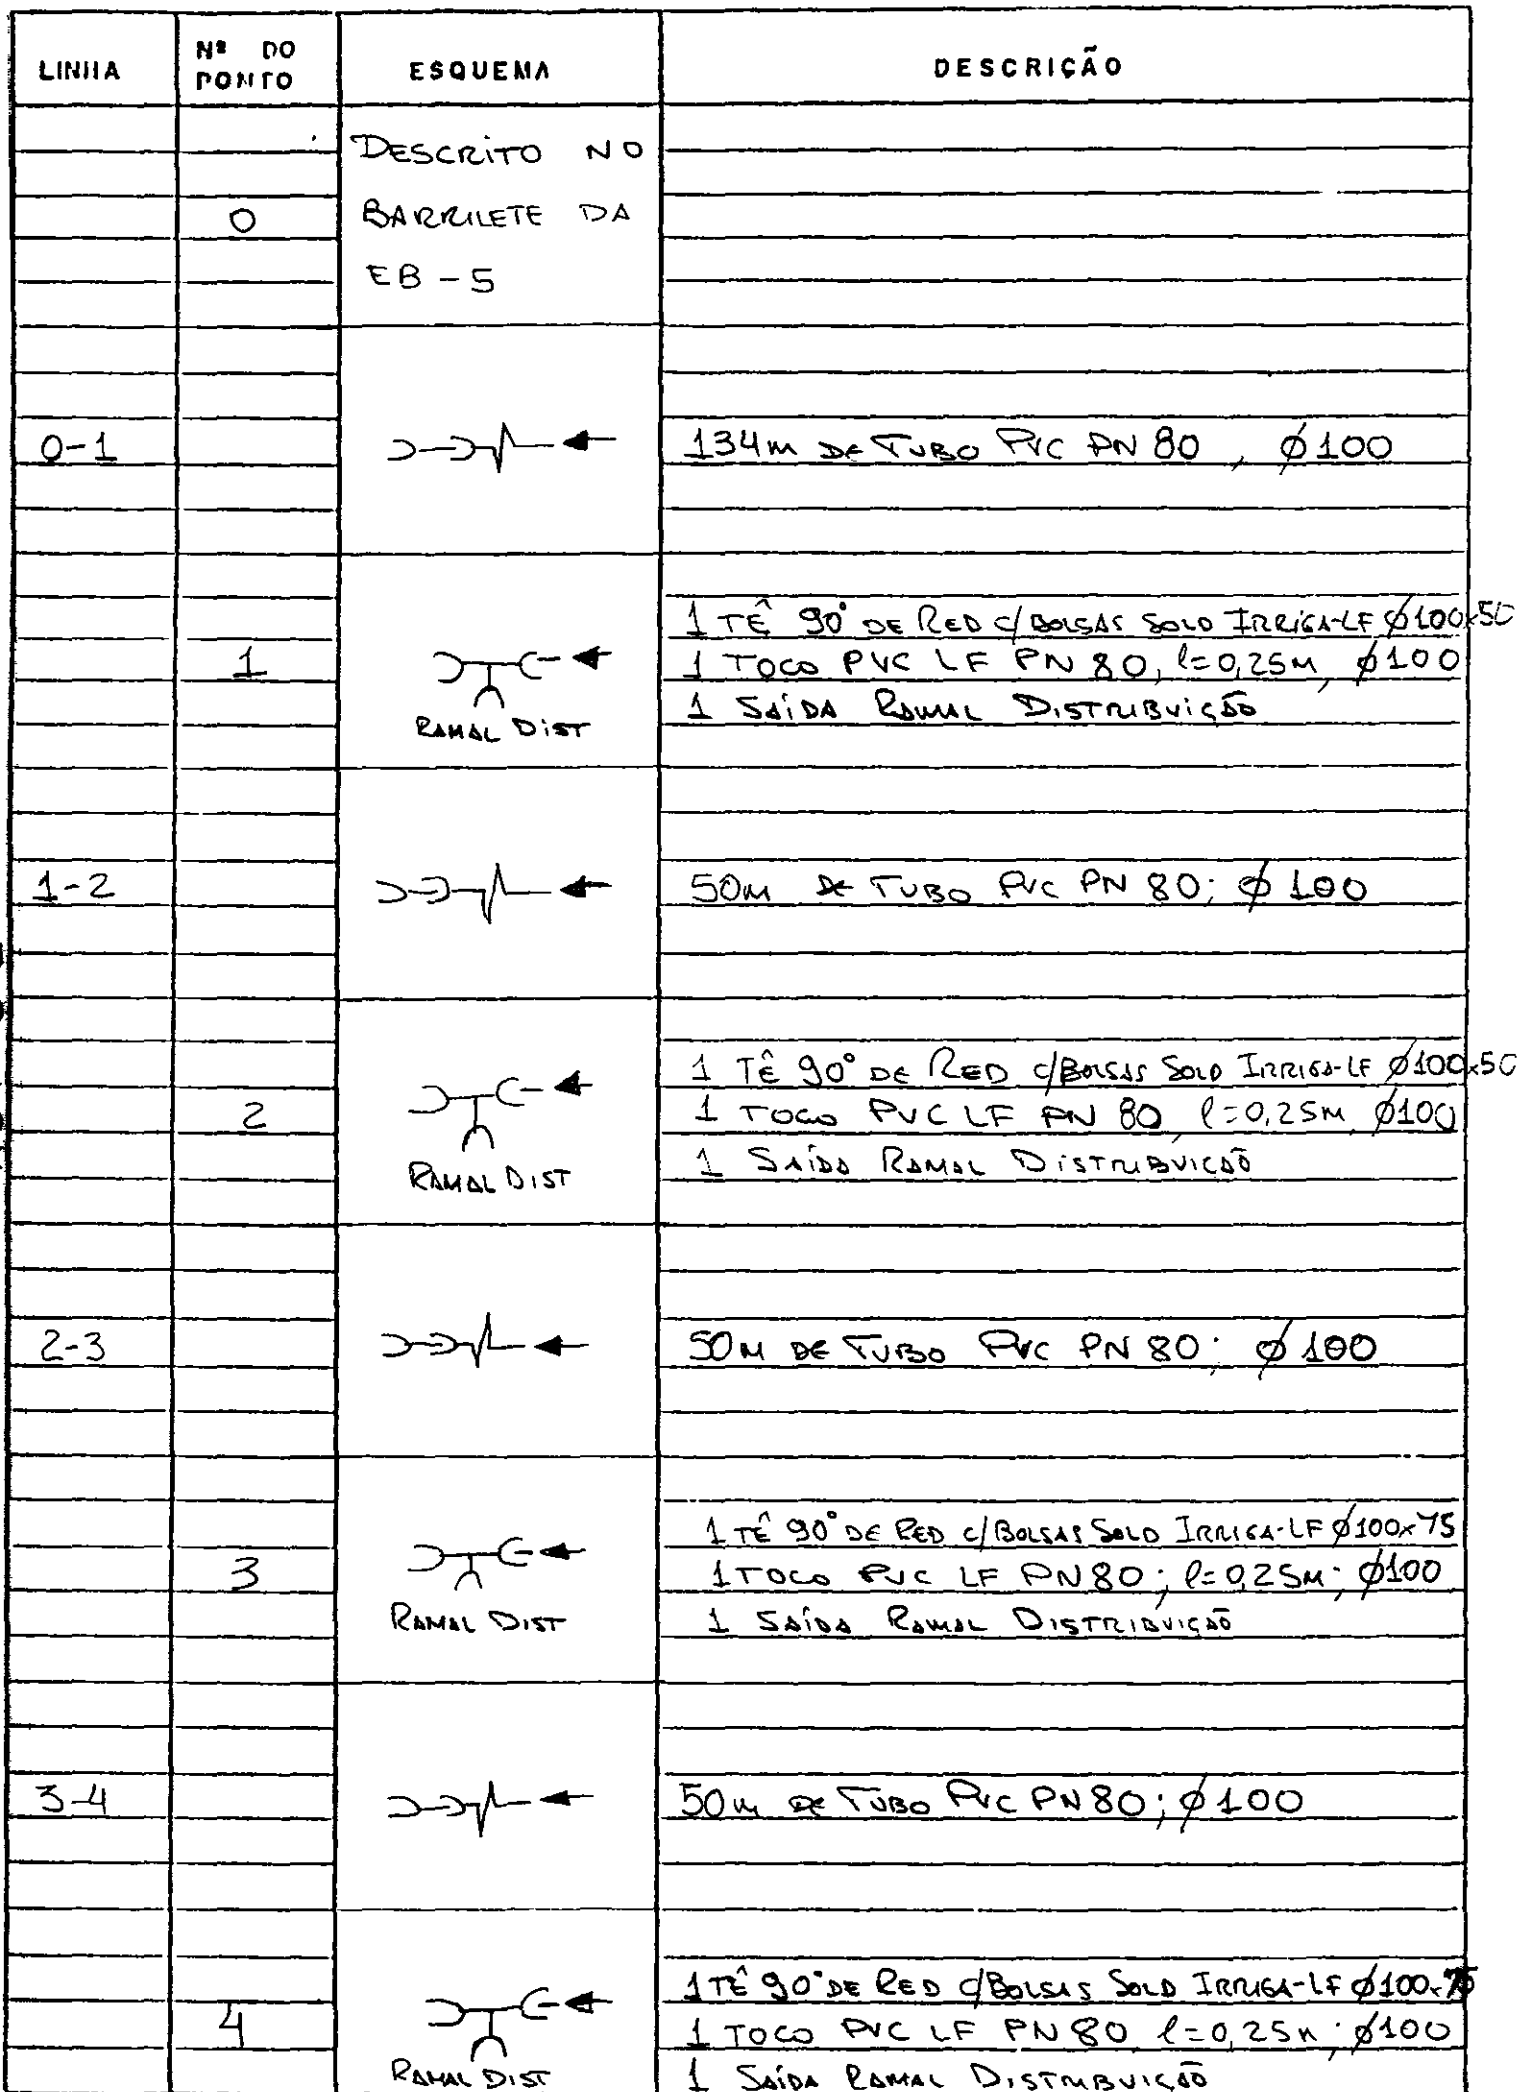 LINHA
Nº DO PONTO
ESQUEMA
DESCRIÇÃO
0
DESCRITO NO
BARRILETE DA
EB-5
0-1
134m DE TUBO PVC PN 80, ø100
1
RAMAL DIST
1 TÊ 90° DE RED C/BOLSAS SOLD IRRIGA-LF ø100x50
1 TOCO PVC LF PN 80, l=0,25M, ø100
1 SAÍDA RAMAL DISTRIBUIÇÃO
1-2
50m DE TUBO PVC PN 80; ø100
2
RAMAL DIST
1 TÊ 90° DE RED C/BOLSAS SOLD IRRIGA-LF ø100x50
1 TOCO PVC LF PN 80, l=0,25M, ø100
1 SAÍDA RAMAL DISTRIBUIÇÃO
2-3
50M DE TUBO PVC PN 80; ø100
3
RAMAL DIST
1 TÊ 90° DE RED C/BOLSAS SOLD IRRIGA-LF ø100x75
1 TOCO PVC LF PN 80; l=0,25M; ø100
1 SAÍDA RAMAL DISTRIBUIÇÃO
3-4
50m DE TUBO PVC PN 80; ø100
4
RAMAL DIST
1 TÊ 90° DE RED C/BOLSAS SOLD IRRIGA-LF ø100x75
1 TOCO PVC LF PN 80, l=0,25M; ø100
1 SAÍDA RAMAL DISTRIBUIÇÃO